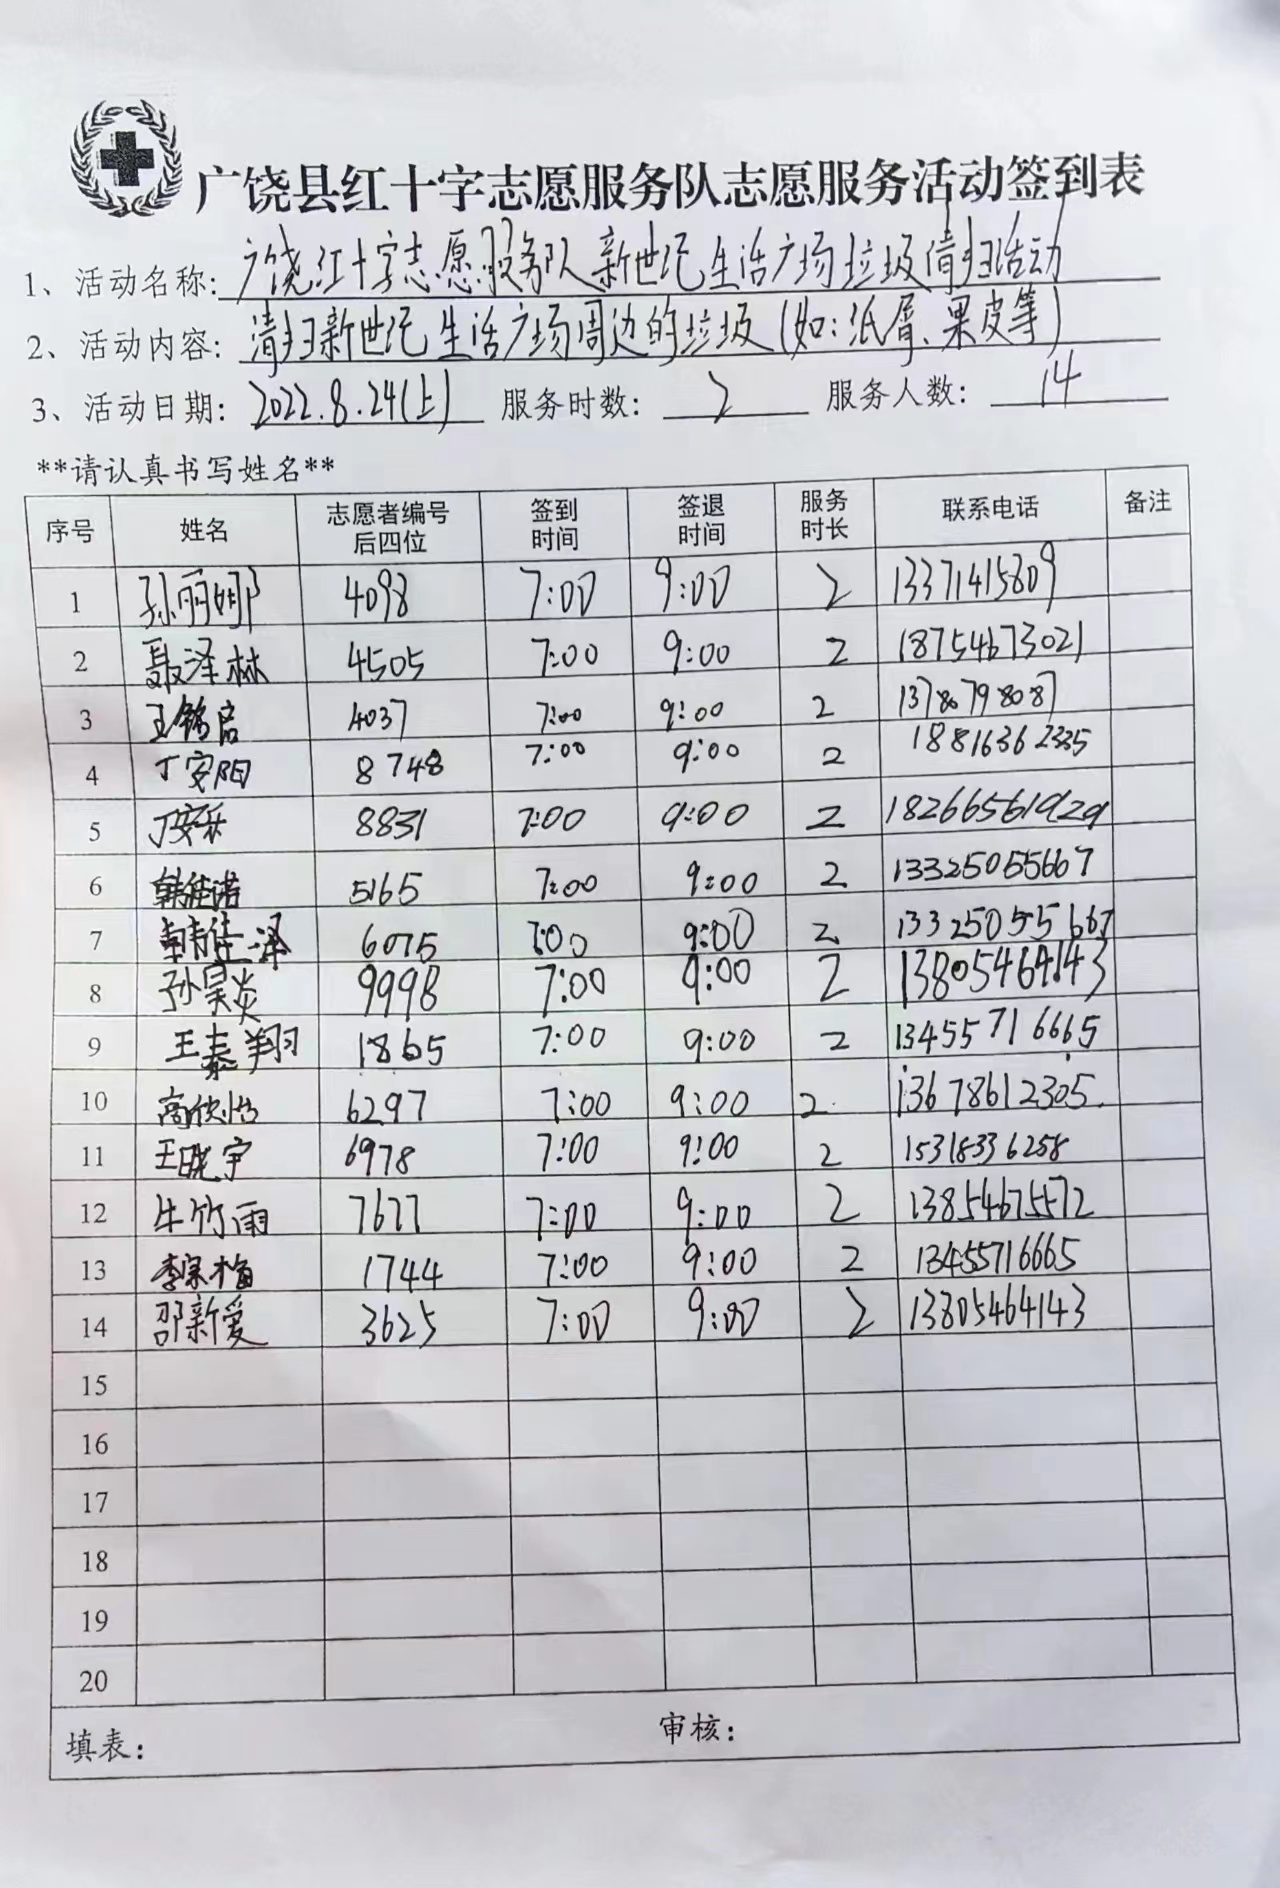 广饶县红十字志愿服务队志愿服务活动签到表
1、活动名称: 广饶红十字志愿服务队新世纪生活广场垃圾清扫活动
2、活动内容: 清扫新世纪生活广场周边的垃圾(如:纸屑、果皮等)
3、活动日期: 2022.8.24(上) 服务时数: 2 服务人数: 14
**请认真书写姓名**
序号 姓名 志愿者编号后四位 签到时间 签退时间 服务时长 联系电话 备注
1 孙丽娜 4098 7:00 9:00 2 13371415809
2 聂泽林 4505 7:00 9:00 2 18754673021
3 王铭启 4037 7:00 9:00 2 13780798087
4 丁安阳 8748 7:00 9:00 2 18816362335
5 丁安乐 8831 7:00 9:00 2 18266561929
6 韩佳诺 5165 7:00 9:00 2 13325055667
7 韩佳泽 6075 7:00 9:00 2 13325055667
8 孙昊炎 9998 7:00 9:00 2 13805464143
9 王泰翔 1865 7:00 9:00 2 13455716665
10 高 6297 7:00 9:00 2 13678612305
11 王晓宇 6978 7:00 9:00 2 15318336258
12 牛竹雨 7677 7:00 9:00 2 13854675572
13 李宗梅 1744 7:00 9:00 2 13455716665
14 邵新爱 3625 7:00 9:00 2 13805464143
15
16
17
18
19
20
填表: 审核: